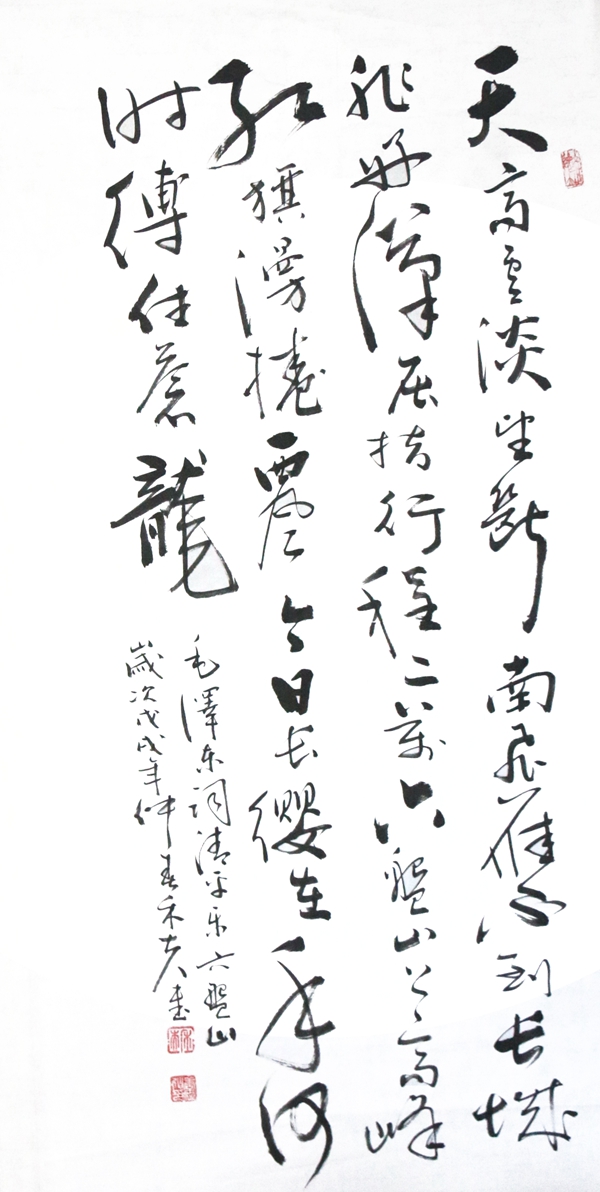 天高雲淡望斷南飛雁不到長城
非好漢屈指行程二萬六盤山上高峰
紅旗漫捲西風今日長纓在手何
時縛住蒼龍
毛澤東詞清平樂六盤山
歲次戊戌年仲春禾夫書